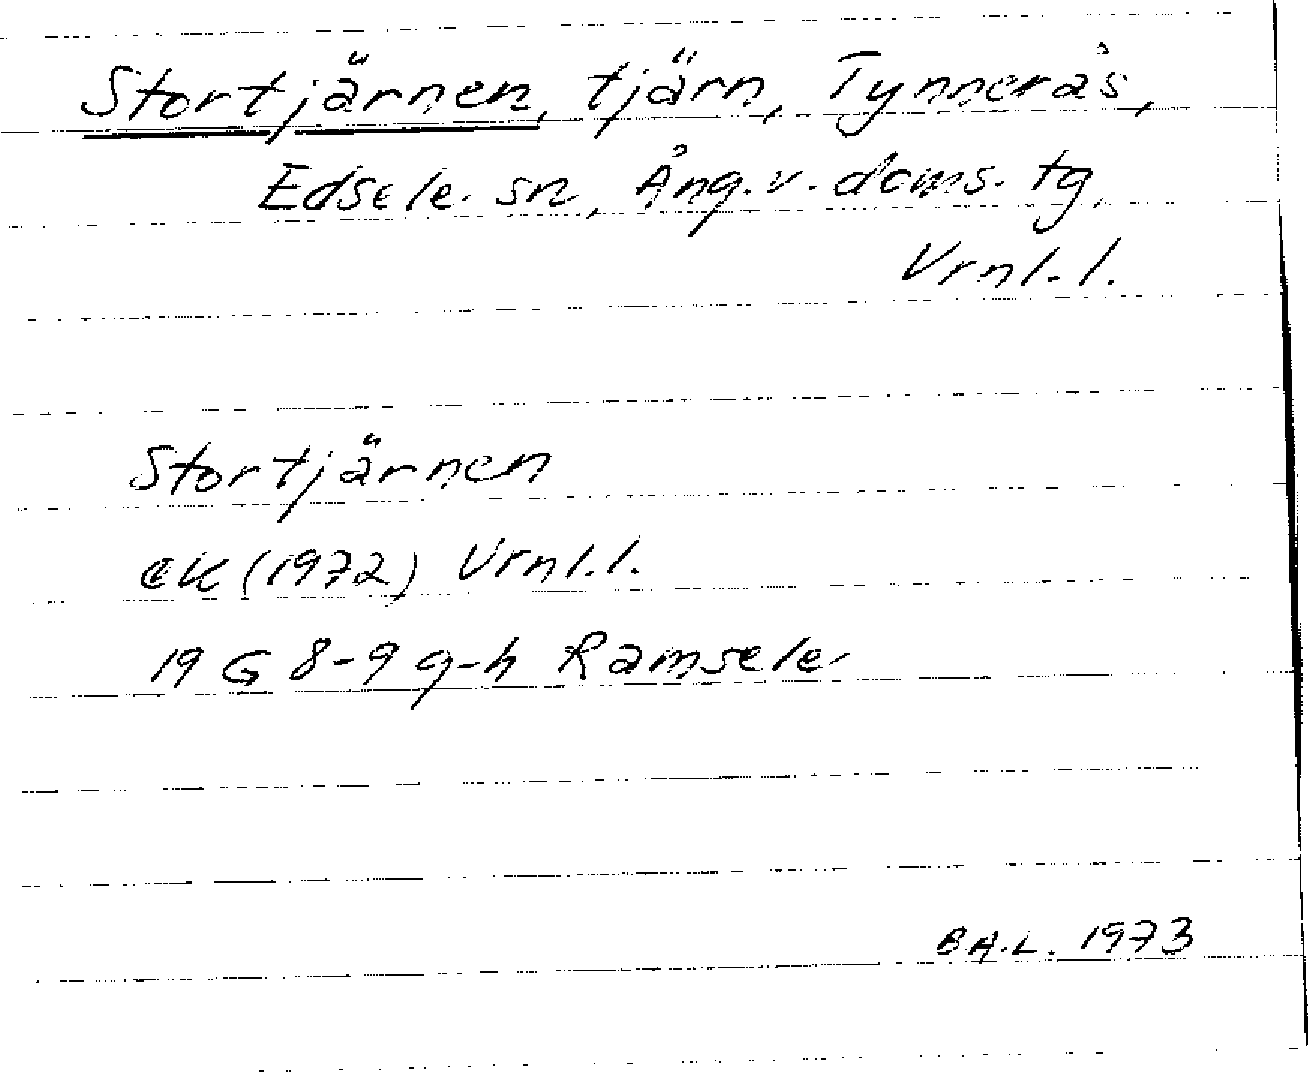 Stortjärnen, tjärn, Tynnerås,
Edsele sn, Ång.v. doms. tg,
Vrnl. l.
Stortjärnen
ek (1972) Vrnl. l.
19 G 8-9 g-h Ramsele
B A. L. 1973